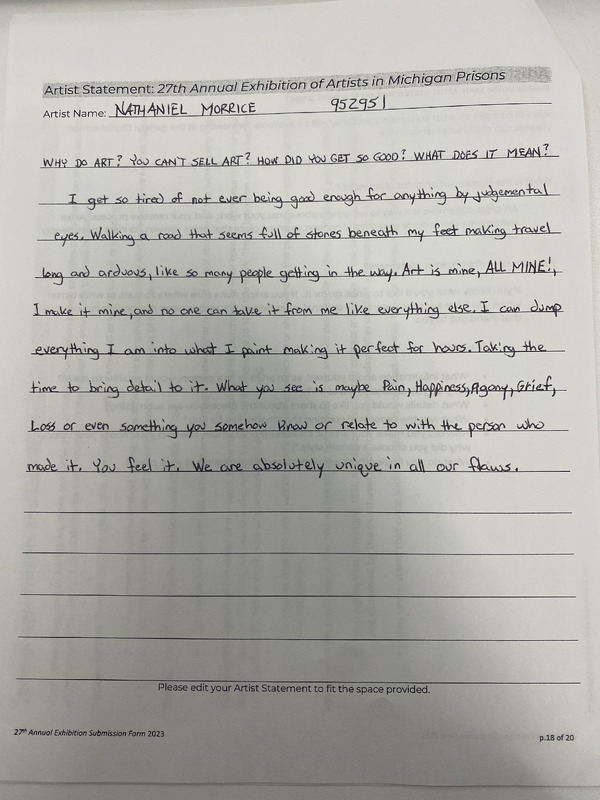 Artist Statement: 27th Annual Exhibition of Artists in Michigan Prisons
Artist Name: NATHANIEL MORRICE 952951
WHY DO ART? YOU CAN'T SELL ART? HOW DID YOU GET SO GOOD? WHAT DOES IT MEAN?
I get so tired of not ever being good enough for anything by judgemental
eyes. Walking a road that seems full of stones beneath my feet making travel
long and arduous, like so many people getting in the way. Art is mine, ALL MINE!,
I make it mine, and no one can take it from me like everything else. I can dump
everything I am into what I paint making it perfect for hours. Taking the
time to bring detail to it. What you see is maybe Pain, Happiness, Agony, Grief,
Loss or even something you somehow know or relate to with the person who
made it. You feel it. We are absolutely unique in all our flaws.
Please edit your Artist Statement to fit the space provided.
27th Annual Exhibition Submission Form 2023
p.18 of 20